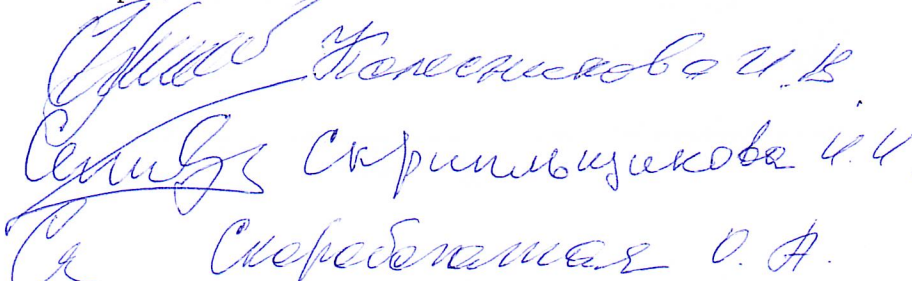 Колесникова И.В.
Скрипльщикова И.И
Скоробогатая О.А.